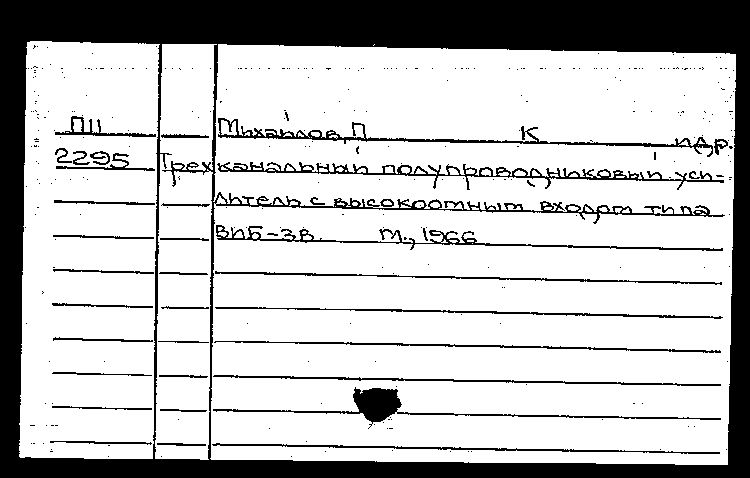 П11 Михайлов, П К и др.
2295 Трехканальный полупроводниковый уси-
литель с высокоомным входом типа
ВИБ-3В. М., 1966